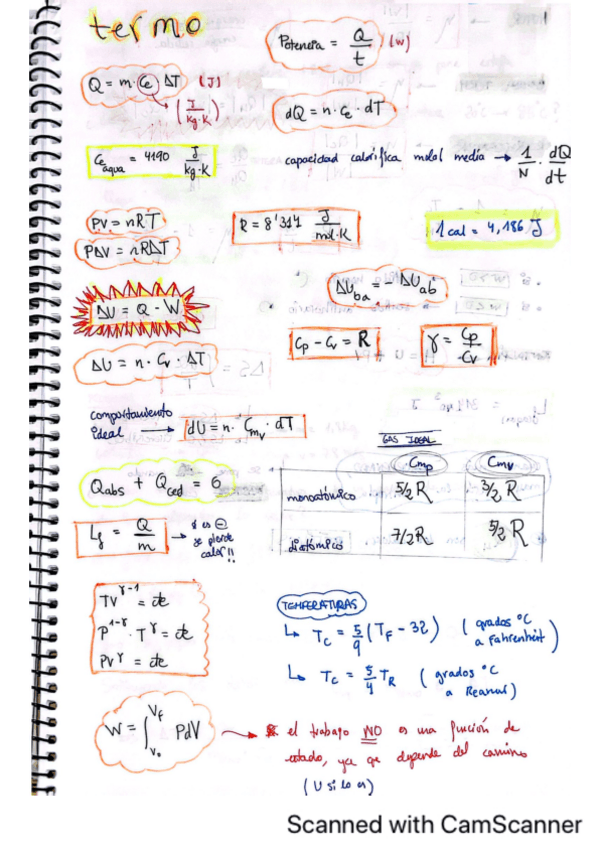 termo
Potencia = Q/t (W)
Q = m·Ce ΔT (J)
(J/kg·K)
dQ = n·Ce·dT
Ce agua = 4190 J/kg·K
capacidad calorífica molal media → 1/N · dQ/dt
PV = nRT
PΔV = nRΔT
R = 8'314 J/mol·K
1 cal = 4,186 J
ΔU = Q - W
ΔU ba = - ΔU ab
Cp - Cv = R
γ = Cp/Cv
ΔU = n· Cv · ΔT
comportamiento
ideal → dU = n· Cmv · dT
GAS IDEAL
Cmp Cmv
monoatómico 5/2 R 3/2 R
diatómico 7/2 R 5/2 R
Qabs + Qced = 6
Lf = Q/m → si es ⊖
se pierde
calor!!
TV^γ-1 = cte
P^1-γ · T^γ = cte
PV^γ = cte
TEMPERATURAS
↳ Tc = 5/9 (TF - 32) (grados °C
a Fahrenheit)
↳ Tc = 5/4 TR (grados °C
a Reamur)
W = ∫ Vo Vf PdV
el trabajo NO es una función de
estado, ya que depende del camino
(U si lo es)
Scanned with CamScanner